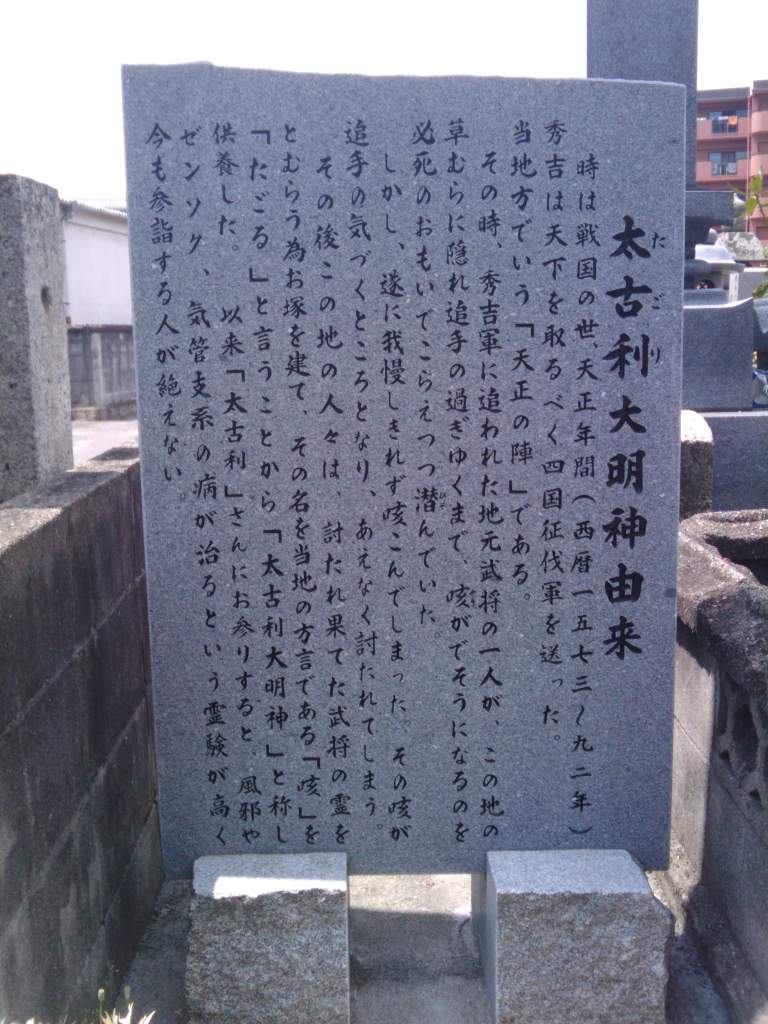 太古利大明神由来
たごり
時は戦国の世、天正年間(西暦一五七三~九二年)
秀吉は天下を取るべく四国征伐軍を送った。
当地方でいう「天正の陣」である。
その時、秀吉軍に追われた地元武将の一人が、この地の
草むらに隠れ追手の過ぎゆくまで、咳がでそうになるのを
必死のおもいでこらえつつ潜んでいた。
しかし、遂に我慢しきれず咳こんでしまった。その咳が
追手の気づくところとなり、あえなく討たれてしまう。
その後この地の人々は、討たれ果てた武将の霊を
とむらう為お塚を建て、その名を当地の方言である「咳」を
「たごる」と言うことから「太古利大明神」と称し
供養した。 以来「太古利」さんにお参りすると、風邪や
ゼンソク、気管支系の病が治るという霊験が高く
今も参詣する人が絶えない。